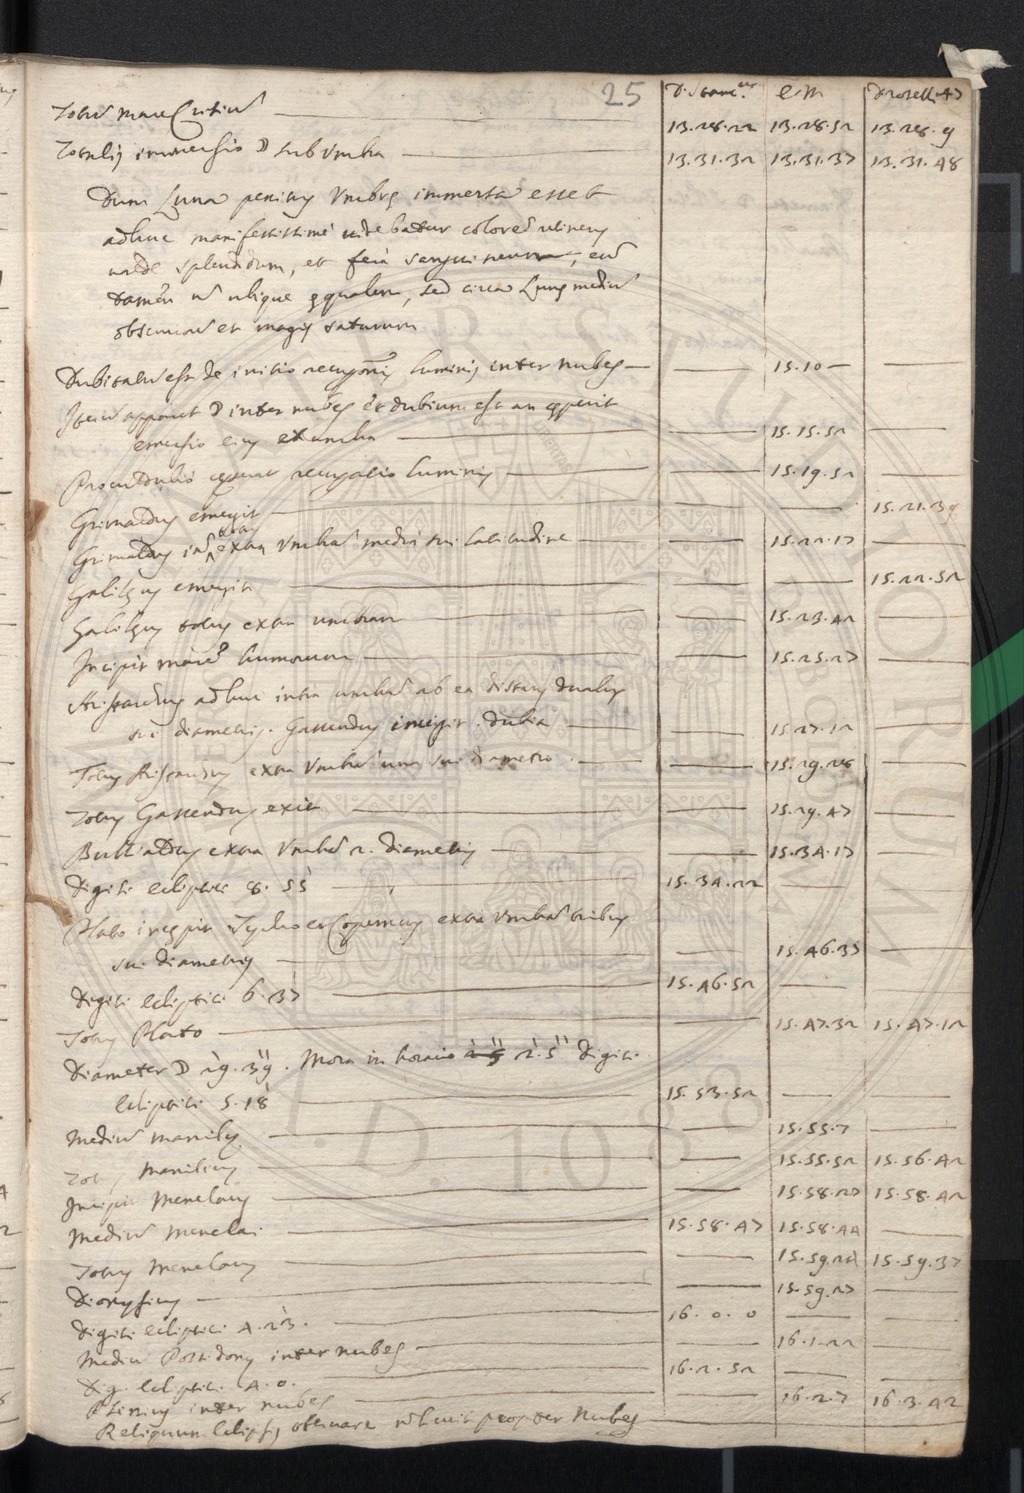 25 E. M
Totum mare Crisium 13.28.22 13.28.52 13.28.9
Totalis immersio ☽ sub umbra 13.31.32 13.31.37 13.31.48
Dum Luna penitus umbrę immersa esset
adhuc manifestissime videbatur colorem retinens
valde splendidum, et sanguineum, eum
tamen non ubique ęqualem, sed circa Lunę medium
obscuriorem et magis saturum
Dubitatum est de initio recuperationis luminis inter nubes 15.10
Iterum apparuit ☽ inter nubes et dubium est an cęperit
emersio eius ex umbra 15.15.52
Procul dubio recuperatio luminis 15.19.52
Grimaldus emergit 15.21.39
Grimaldus totus extra umbram media sui latitudine 15.22.17
Galilęus emergit 15.22.52
Galilęus totus extra umbram 15.23.42
Incipit mare humorum 15.25.27
Aristarchus adhuc intra umbram ab ea distans duabus
sui diametris. Gassendus emergit. dubia 15.27.12
Totus Aristarchus extra umbram una sui diametro 15.29.28
Totus Gassendus exiit 15.29.47
Bullialdus extra umbram 2. diametris 15.34.17
Digiti ecliptici 8. 55 15.34.22
Plato incipit Tycho et Copernicus extra umbram tribus
sui diametris 15.46.37
Digiti ecliptici 6. 37 15.46.52
Totus Plato 15.47.32 15.47.12
Diameter ☽ 29'. 39''. Mora in horario 2'. 5'' Digiti
ecliptici 5. 18 15.53.52
Medium manilij 15.55.7
Totus Manilius 15.55.52 15.56.42
Incipit Menelaus 15.58.27 15.58.42
Medium Menelai 15.58.47 15.58.44
Totus Menelaus 15.59.22 15.59.37
Dionysius 15.59.27
Digiti ecliptici 4. 23. 16.0.0
Medium Possidony inter nubes 16.1.22
Dig. ecliptici 4. 0. 16.2.52
Plinius inter nubes 16.2.7 16.3.42
Reliquum Eclipsis observare non licuit propter Nubes